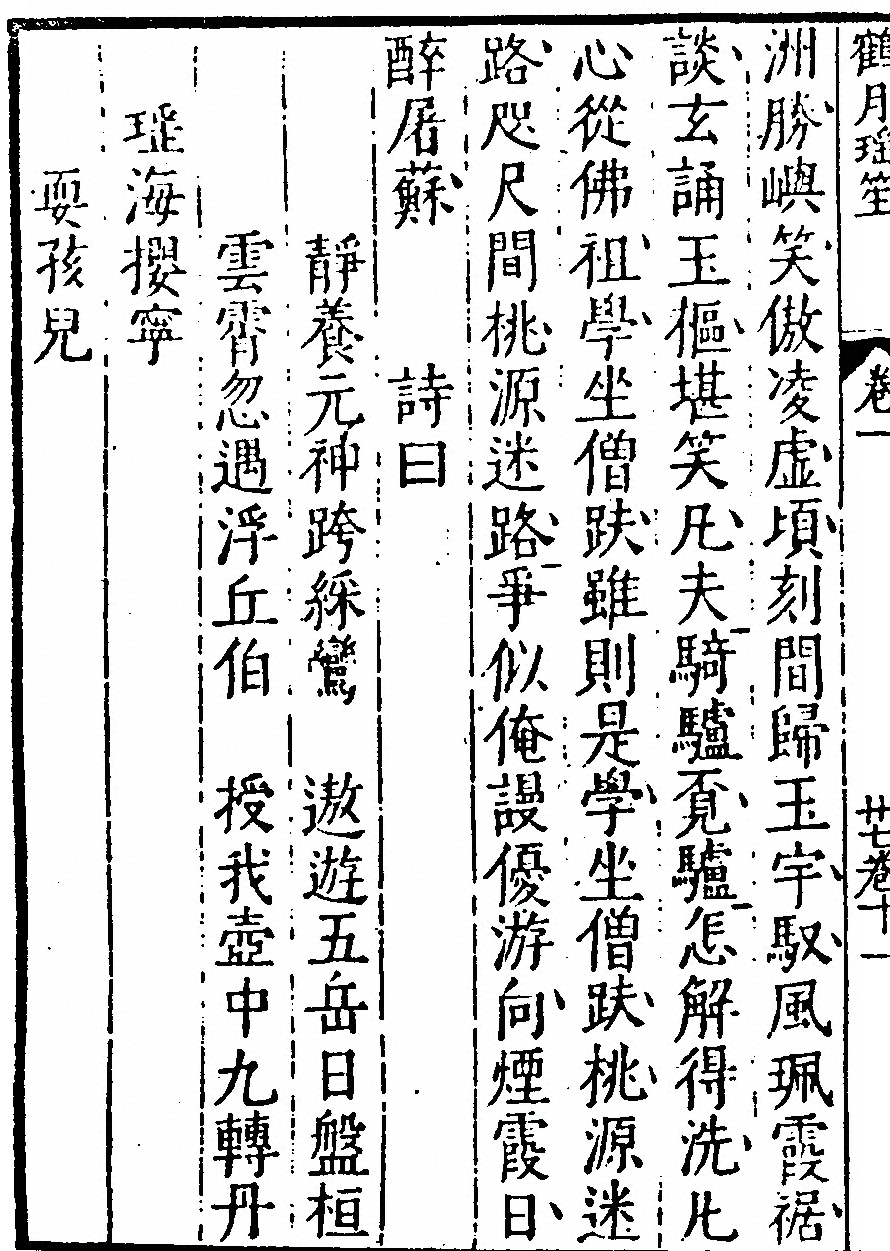 鶴月瑶笙 卷一 廿七卷十一
洲勝嶼笑傲凌虚頃刻間歸玉宇馭風珮霞裾
談玄誦玉樞堪笑凡夫騎驢覔驢怎解得洗凡
心從佛祖學坐僧趺雖則是學坐僧趺桃源迷
路咫尺間桃源迷路爭似俺謾優游向煙霞日
醉屠蘇 詩曰
靜養元神跨綵鸞 遨遊五岳日盤桓
雲霄忽遇浮丘伯 授我壺中九轉丹
瑶海攖寧
耍孩兒